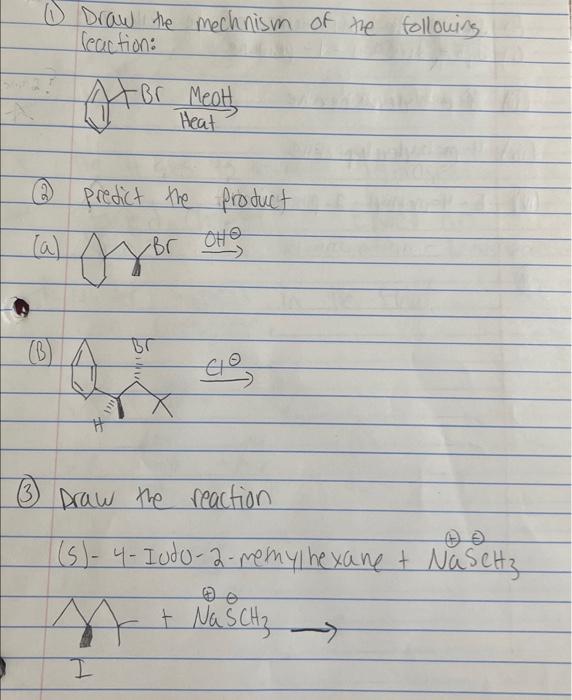 ① Draw the mechnism of the following
reaction:
Br MeOH
Heat
② predict the product
(a) Br OH⊖
(B) Br Cl⊖
H
③ Draw the reaction
(s)-4-Iodo-2-memylhexane + Na⊕SCH3⊖
+ Na⊕SCH3⊖
I